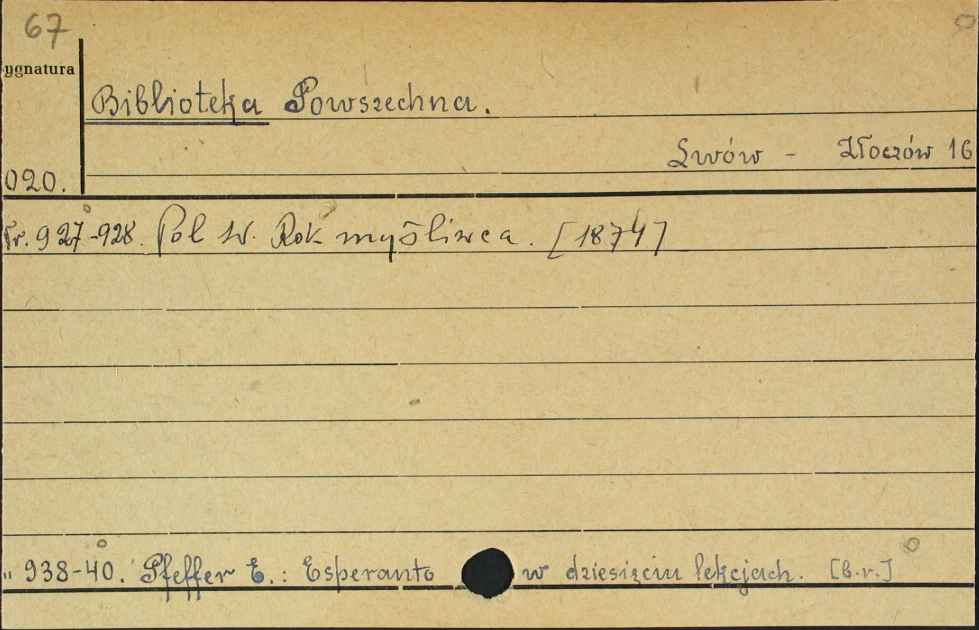 67
ygnatura
Biblioteka Powszechna.
Lwów - Złoczów 16
020.
Nr. 927-928. Pol W. Rok myśliwca. [1874]
„ 938-40. Pfeffer E.: Esperanto w dziesięciu lekcjach. [b.r.]